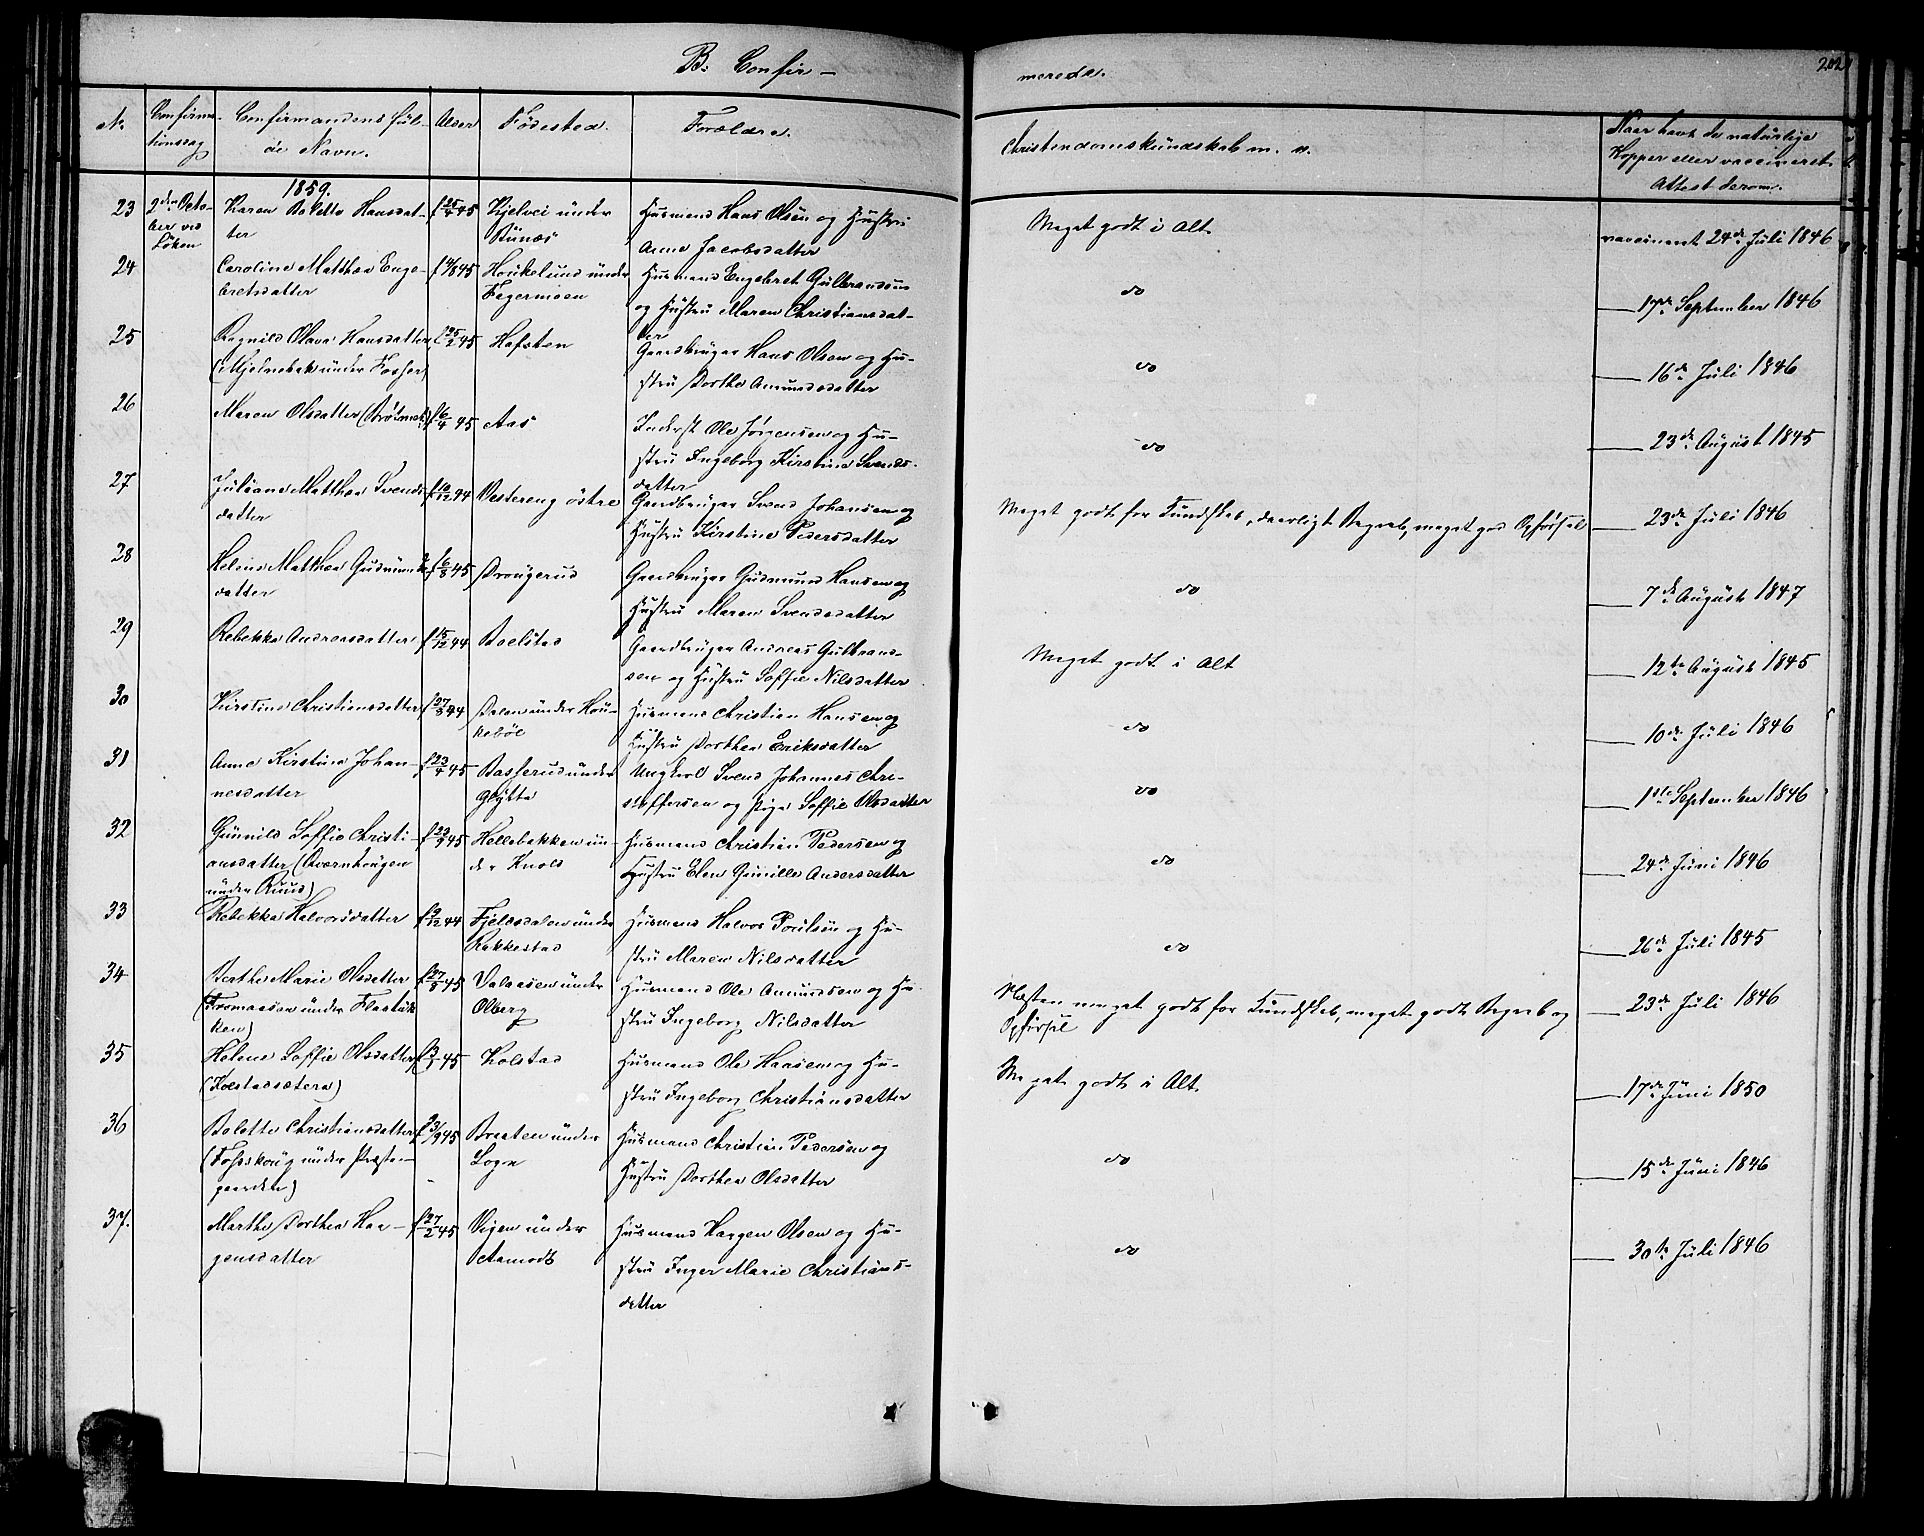 B. Confir-
merede.
202
No.
Confirma-
tionsdag
Confirmandens ful-
de Navn.
Alder
Fødested.
Forældre.
Christendomskundskab m. m.
Naar havt de naturlige
Kopper eller vaccineret.
Attest derom.
1859.
23 2den Octo-
ber ved
Löken
Karen Bolette Hansdat-
ter
f 25/4 45
under
Husmand Hans Olsen og Hustru
Anne Jacobsdatter
Meget godt i Alt
vaccineret 24de Juli 1846
24 Caroline Matthea Enge-
bretsdatter
Houkelund under
Fagermoen
Husmand Engebret Gulbrandsen
og Hustru Maren Christiansdat-
ter
do
17de September 1846
25 Ragnild Olava Hansdatter
(Mjelnebak under Fosser)
f 25/2 45
Hafsten
Gaardbruger Hans Olsen og Hu-
stru Dorthe Amundsdatter
do
16de Juli 1846
26 Maren Olsdatter
f 6/4 45
Aas
Inderst Ole Jørgensen og Hu-
stru Ingeborg Kirstine Svends-
datter
do
23de August 1845
27 Juliane Matthea Svends-
datter
f 10/12 44
Vestereng östre
Gaardbruger Svend Johansen og
Hustru Kirstine Pedersdatter
Meget godt for Kundskab, daarligt Begreb, meget god Opførsel
23de Juli 1846
28 Helene Matthea Gudmunds-
datter
f 6/8 45
Drougerud
Gaardbruger Gudmund Hansen og
Hustru Maren Svendsdatter
do
7de August 1847
29 Rebekka Andreasdatter
f 15/12 44
Boelstad
Gaardbruger Andreas Gulbrand-
sen og Hustru Soffie Nilsdatter
Meget godt i Alt
12te August 1845
30 Kirstine Christiansdatter
Dalen under Hou-
keböl
Husmand Christian Hansen og
Hustru Dorthea Eriksdatter
do
10de Juli 1846
31 Anne Kirstine Johan-
nesdatter
f 23/4 45
Basserud under
Glytte
Ungkarl Svend Johannes Chri-
stoffersen og Pige Soffie Olsdatter
do
1ste September 1846
32 Gunnild Soffie Christi-
ansdatter (Kvernhougen
under Ruud)
Hellebekken un-
der Knold
Husmand Christian Pedersen og
Hustru Elen Gunille Andersdatter
do
24de Juni 1846
33 Rebekka Halvorsdatter
f 9/12 44
Fjeldsdalen under
Rakkestad
Husmand Halvor Poulsen og Hu-
stru Maren Nilsdatter
do
26de Juli 1845
34 Berthe Marie Olsdatter
f 27/5 45
Valaasen under
Olberg
Husmand Ole Amundsen og Hu-
stru Ingeborg Nilsdatter
Næsten meget godt for Kundskab, meget godt Begreb og
Opførsel
23de Juli 1846
35 Helene Soffie Olsdatter
(Kolstadsætern)
Kolstad
Husmand Ole Hansen og Hu-
stru Ingeborg Christiansdatter
Meget godt i Alt
17de Juni 1850
36 Bolette Christiansdatter
(Fosskoug under Præste-
gaarden)
Braaten under
Logn
Husmand Christian Pedersen og
Hustru Dorthea Olsdatter
do
15de Juni 1846
37. Marthe Dorthea Haa-
gensdatter
f 27/2 45
Vigen under
Aamodt
Husmand Haagen Olsen og Hu-
stru Inger Marie Christians-
datter
do
30te Juli 1846